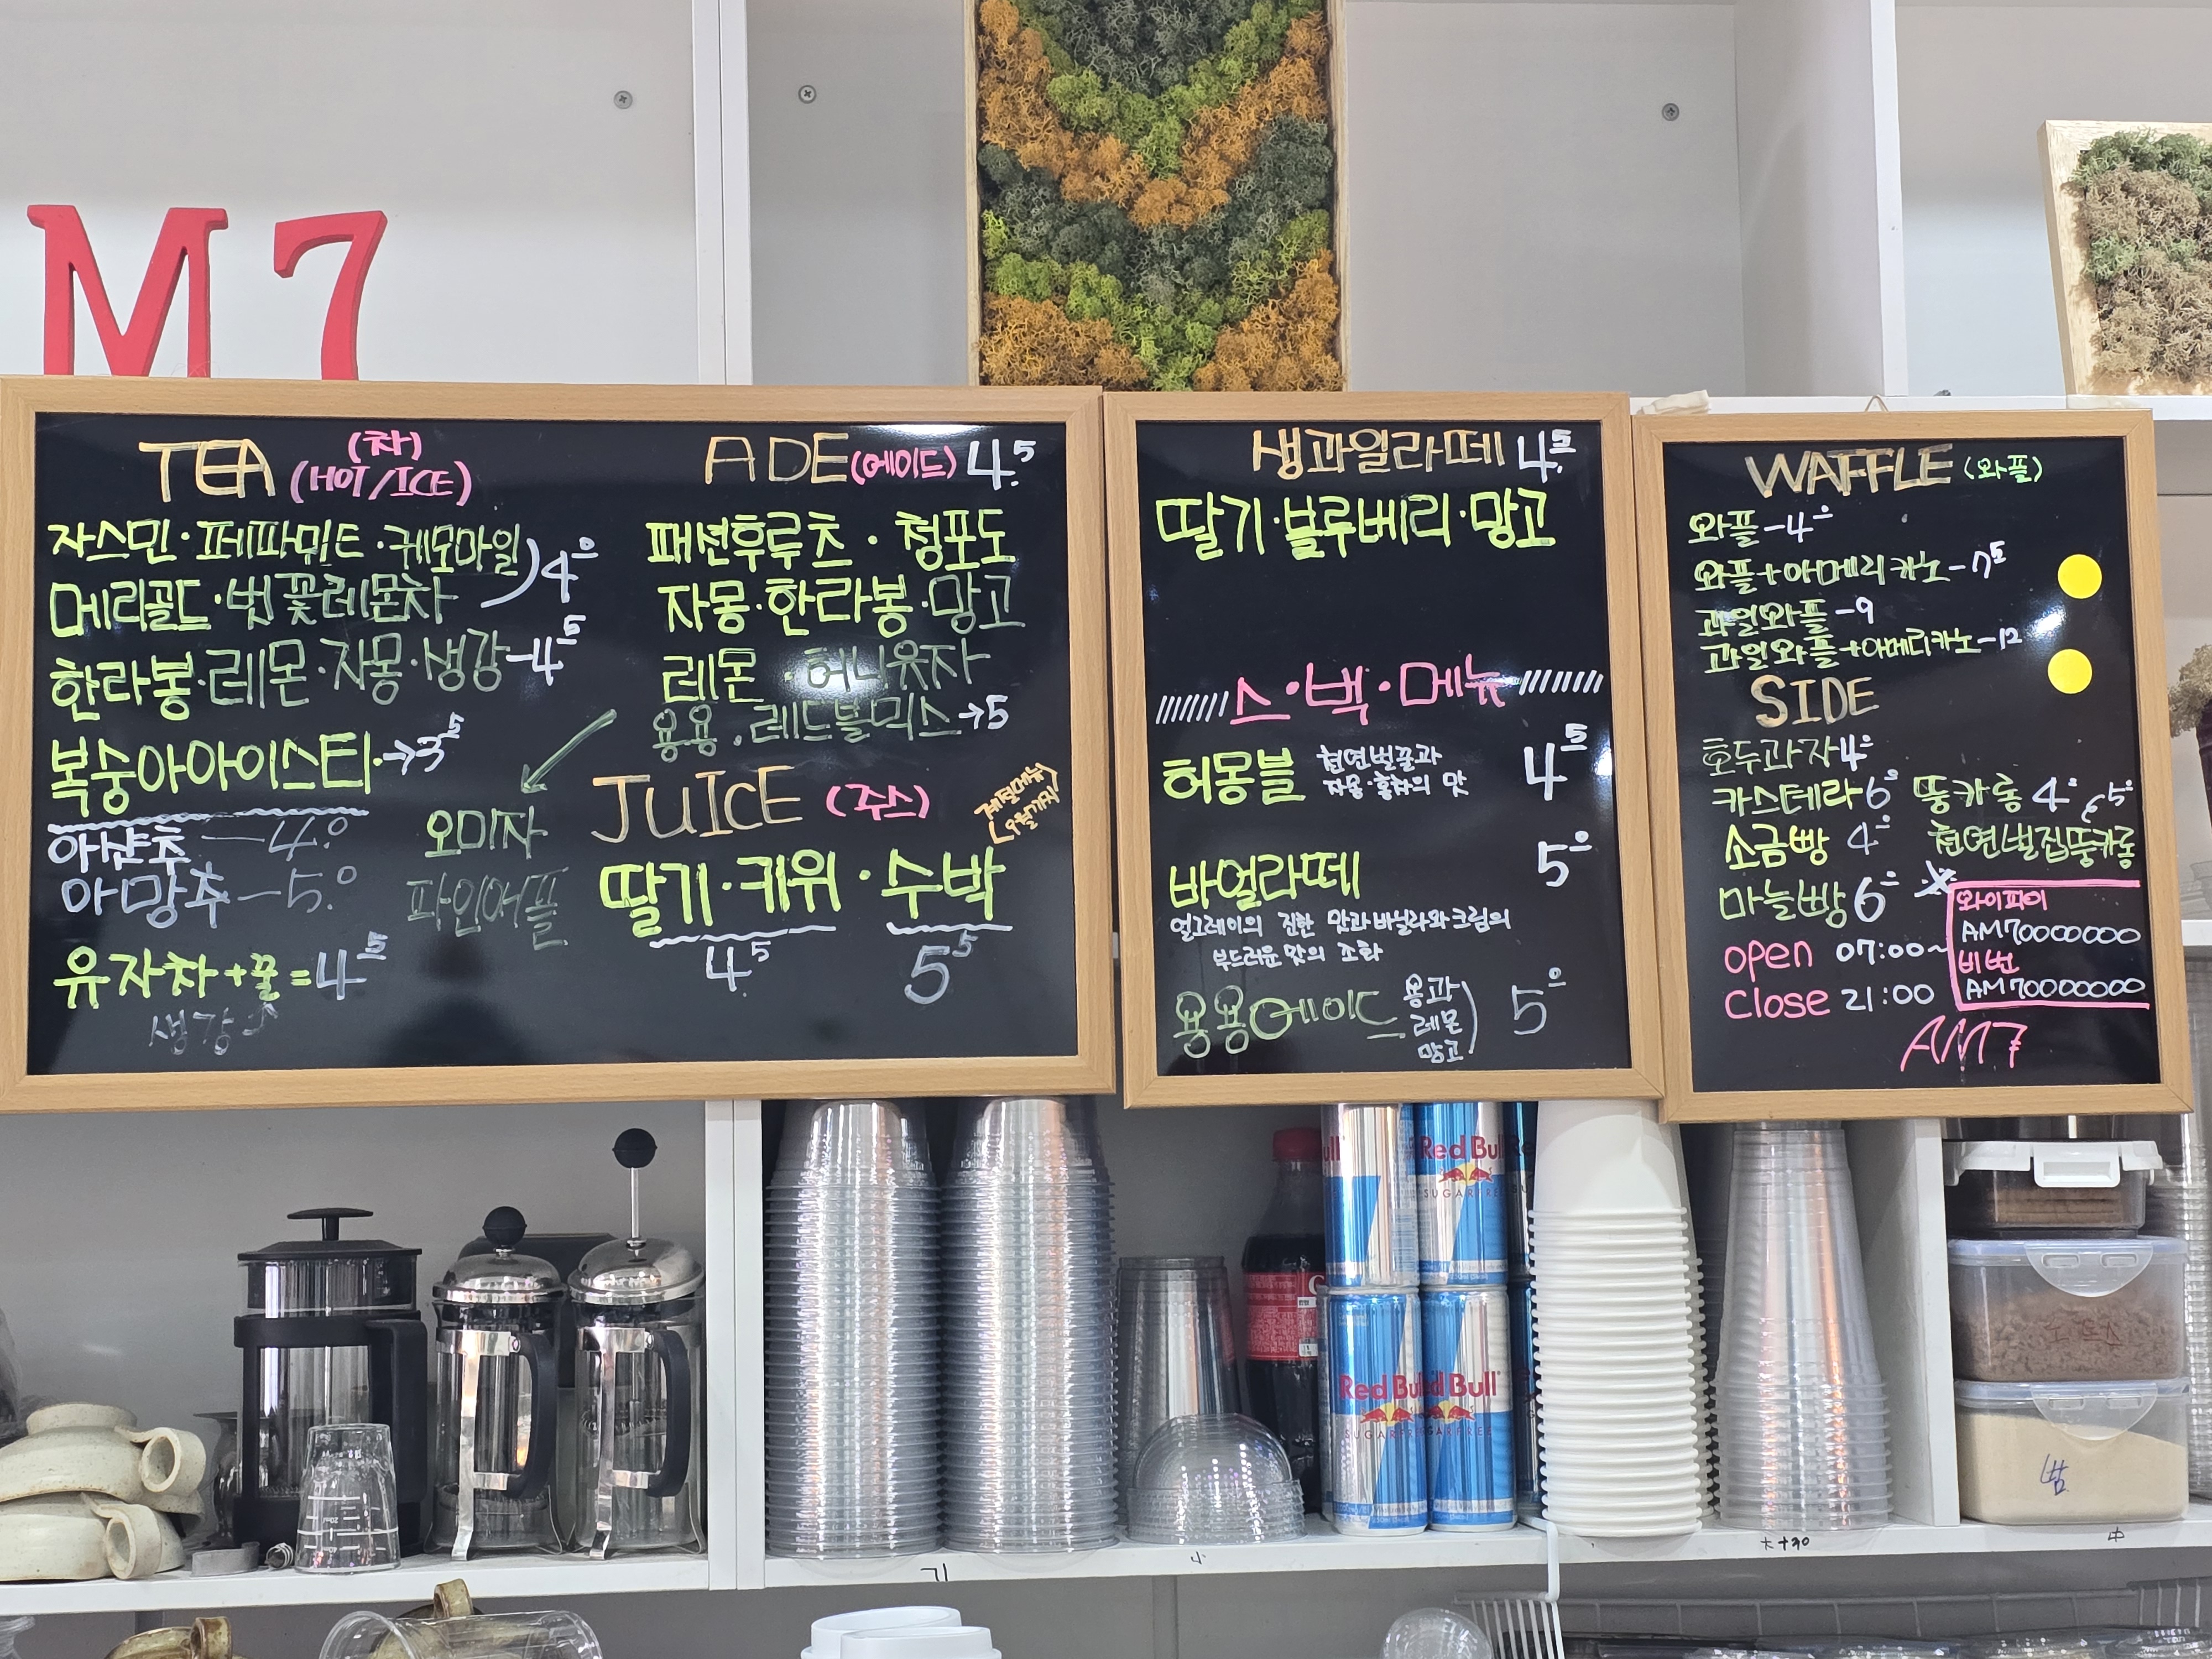 M7
TEA (차)
(HOT/ICE)
자스민·페파민트·케모마일
메리골드·벚꽃레몬차
4.0
한라봉·레몬·자몽·생강-4.5
복숭아아이스티→3.5
아샷추 — 4.0
아망추 — 5.0
유자차+꿀=4.5
생강
ADE(에이드) 4.5
패션후루츠·청포도
자몽·한라봉·망고
레몬·허니유자
용용·레드불믹스→5
오미자
파인애플
JUICE (주스)
계절메뉴
9월까지
딸기·키위·수박
4.5
5.5
생과일라떼 4.5
딸기·블루베리·망고
스·백·메뉴
허몽블 천연벌꿀과 4.5
자몽·홍차의 맛
바얼라떼 5.0
얼그레이의 진한 맛과 바닐라와 크림의
부드러운 맛의 조화
용용에이드 용과 레몬 망고 5.0
WAFFLE (와플)
와플-4.0
와플+아메리카노-7.5
과일와플-9
과일와플+아메리카노-12
SIDE
호두과자 4.0
카스테라 6.0 뚱카롱 4.0
소금빵 4.0 천연벌집뚱카롱 5.0
마늘빵 6.0
open 07:00~
close 21:00
와이파이
AM70000000
비번
AM70000000
AM7
Red Bull
SUGARFREE
Red Bull
Red Bull
SUGARFREE
大+30
中
小